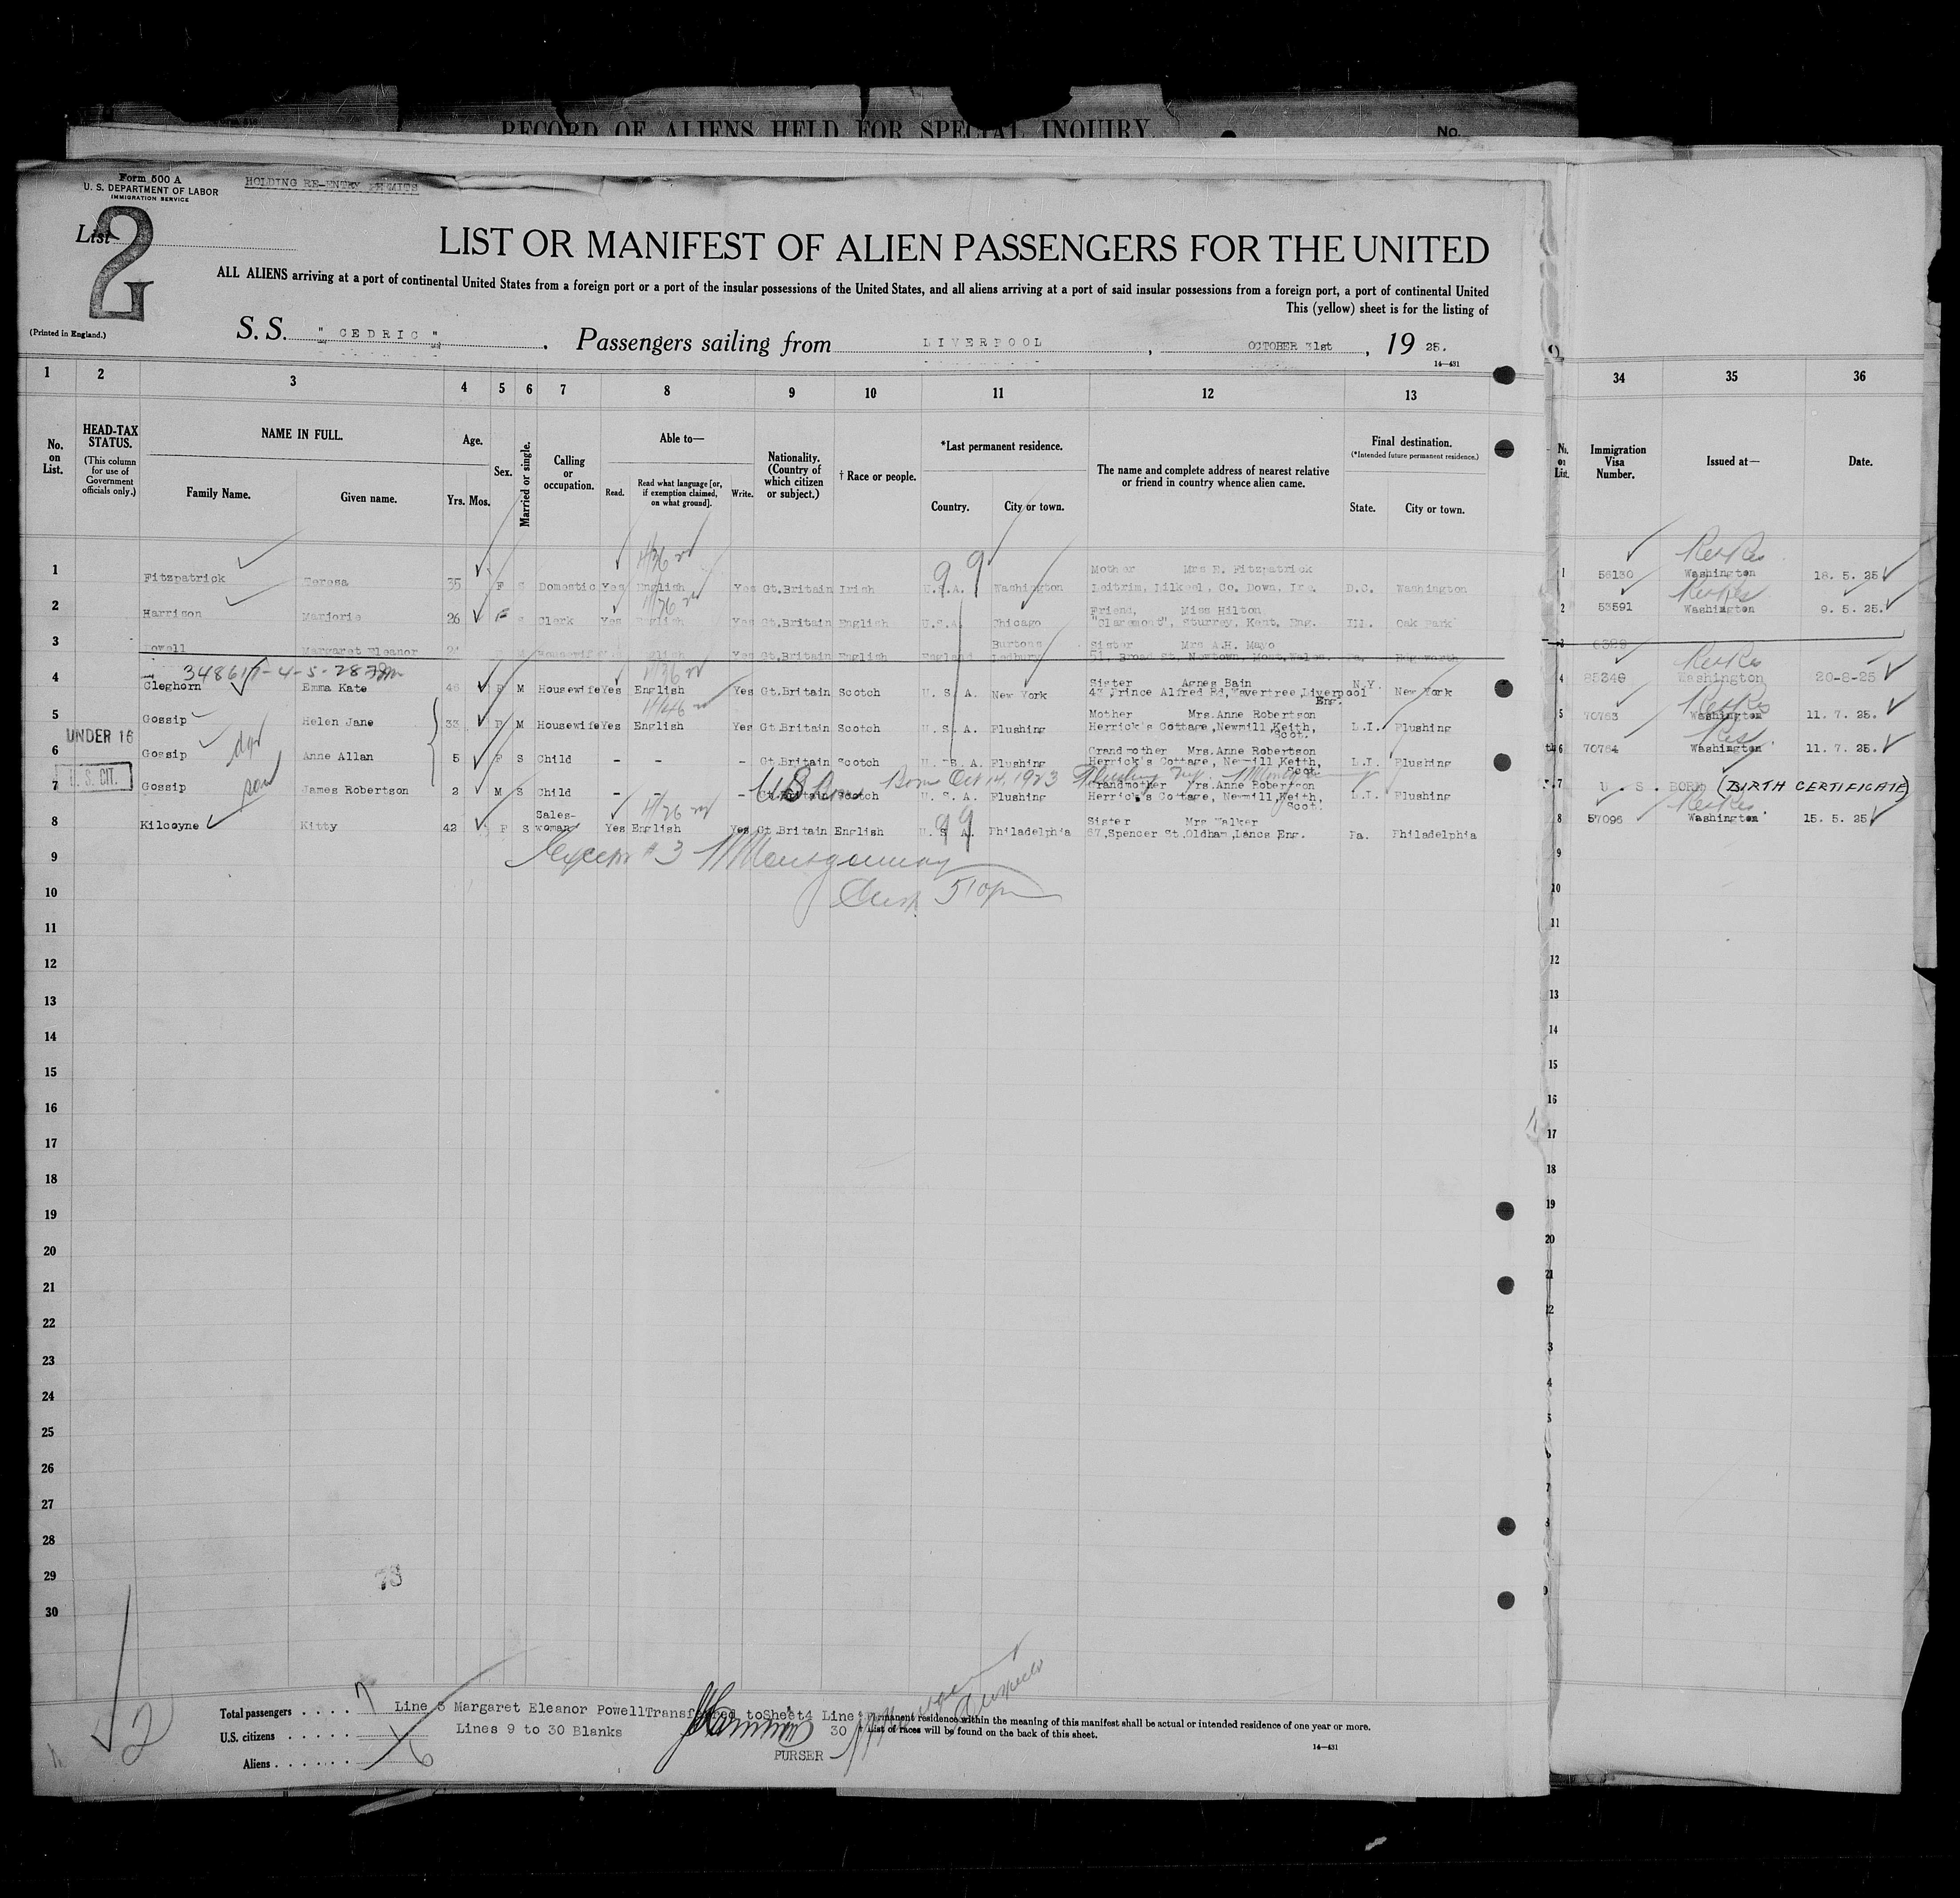 RECORD OF ALIENS HELD FOR SPECIAL INQUIRY.
No.
Form 500 A
U. S. DEPARTMENT OF LABOR
IMMIGRATION SERVICE
HOLDING RE-ENTRY PERMITS
List 2
LIST OR MANIFEST OF ALIEN PASSENGERS FOR THE UNITED
ALL ALIENS arriving at a port of continental United States from a foreign port or a port of the insular possessions of the United States, and all aliens arriving at a port of said insular possessions from a foreign port, a port of continental United
This (yellow) sheet is for the listing of
(Printed in England.)
S. S. "CEDRIC", Passengers sailing from LIVERPOOL, OCTOBER 31st, 19 25.
14—431
1 2 3 4 5 6 7 8 9 10 11 12 13 34 35 36
No. on List.
HEAD-TAX STATUS.
(This column for use of Government officials only.)
NAME IN FULL.
Family Name. Given name.
Age.
Yrs. Mos.
Sex.
Married or single.
Calling or occupation.
Able to—
Read. Read what language [or, if exemption claimed, on what ground]. Write.
Nationality. (Country of which citizen or subject.)
† Race or people.
*Last permanent residence.
Country. City or town.
The name and complete address of nearest relative or friend in country whence alien came.
Final destination.
(*Intended future permanent residence.)
State. City or town.
No. on List.
Immigration Visa Number.
Issued at—
Date.
1 Fitzpatrick Teresa 35 F S Domestic Yes English Yes Gt.Britain Irish U.S.A. Washington Mother Mrs R. Fitzpatrick Leitrim, Co. Down, Ire. D.C. Washington 1 56130 Washington 18. 5. 25
2 Harrison Marjorie 26 F S Clerk Yes English Yes Gt.Britain English U.S.A. Chicago Friend, Miss Hilton "Claremont", Sturrey, Kent, Eng. Ill. Oak Park 2 53591 Washington 9. 5. 25.
3 Powell Margaret Eleanor M Housewife English Yes Gt.Britain English England Ledbury Sister Mrs A.H. Mayo 51, Broad St, Newtown, Mont, Wales. Pa.
4 Cleghorn Emma Kate 46 F M Housewife Yes English Yes Gt.Britain Scotch U. S. A. New York Sister Agnes Bain 43 Prince Alfred Rd, Wavertree, Liverpool Eng. N.Y. New York 4 85340 Washington 20-8-25
5 Gossip Helen Jane 33 F M Housewife Yes English Yes Gt.Britain Scotch U. S. A. Flushing Mother Mrs. Anne Robertson Herrick's Cottage, Newmill, Keith, Scot. L.I. Flushing 5 70763 Washington 11. 7. 25.
UNDER 16
6 Gossip Anne Allan 5 F S Child - - - Gt.Britain Scotch U. S. A. Flushing Grandmother Mrs. Anne Robertson Herrick's Cottage, Newmill, Keith, Scot. L.I. Flushing 6 70764 Washington 11. 7. 25.
U. S. CIT.
Born Oct 14, 1923 Flushing
7 Gossip son James Robertson 2 M S Child - - - Gt.Britain Scotch U. S. A. Flushing Grandmother Mrs. Anne Robertson Herrick's Cottage, Newmill, Keith, Scot. L.I. Flushing 7 U. S. BORN (BIRTH CERTIFICATE)
8 Kilcoyne Kitty 42 F S Sales-woman Yes English Yes Gt.Britain English U. S. A. Philadelphia Sister Mrs Walker 67, Spencer St. Oldham, Lancs Eng. Pa. Philadelphia 8 57096 Washington 15. 5. 25
Except # 3 Montgomery
9
10
11
12
13
14
15
16
17
18
19
20
21
22
23
24
25
26
27
28
29
30
73
Total passengers . . . . 7
U.S. citizens . . . . .
Aliens . . . . . . 6
Line 3 Margaret Eleanor Powell Transferred to Sheet 4 Line 30
Lines 9 to 30 Blanks
PURSER
* Permanent residence within the meaning of this manifest shall be actual or intended residence of one year or more.
† List of races will be found on the back of this sheet.
14—431
2